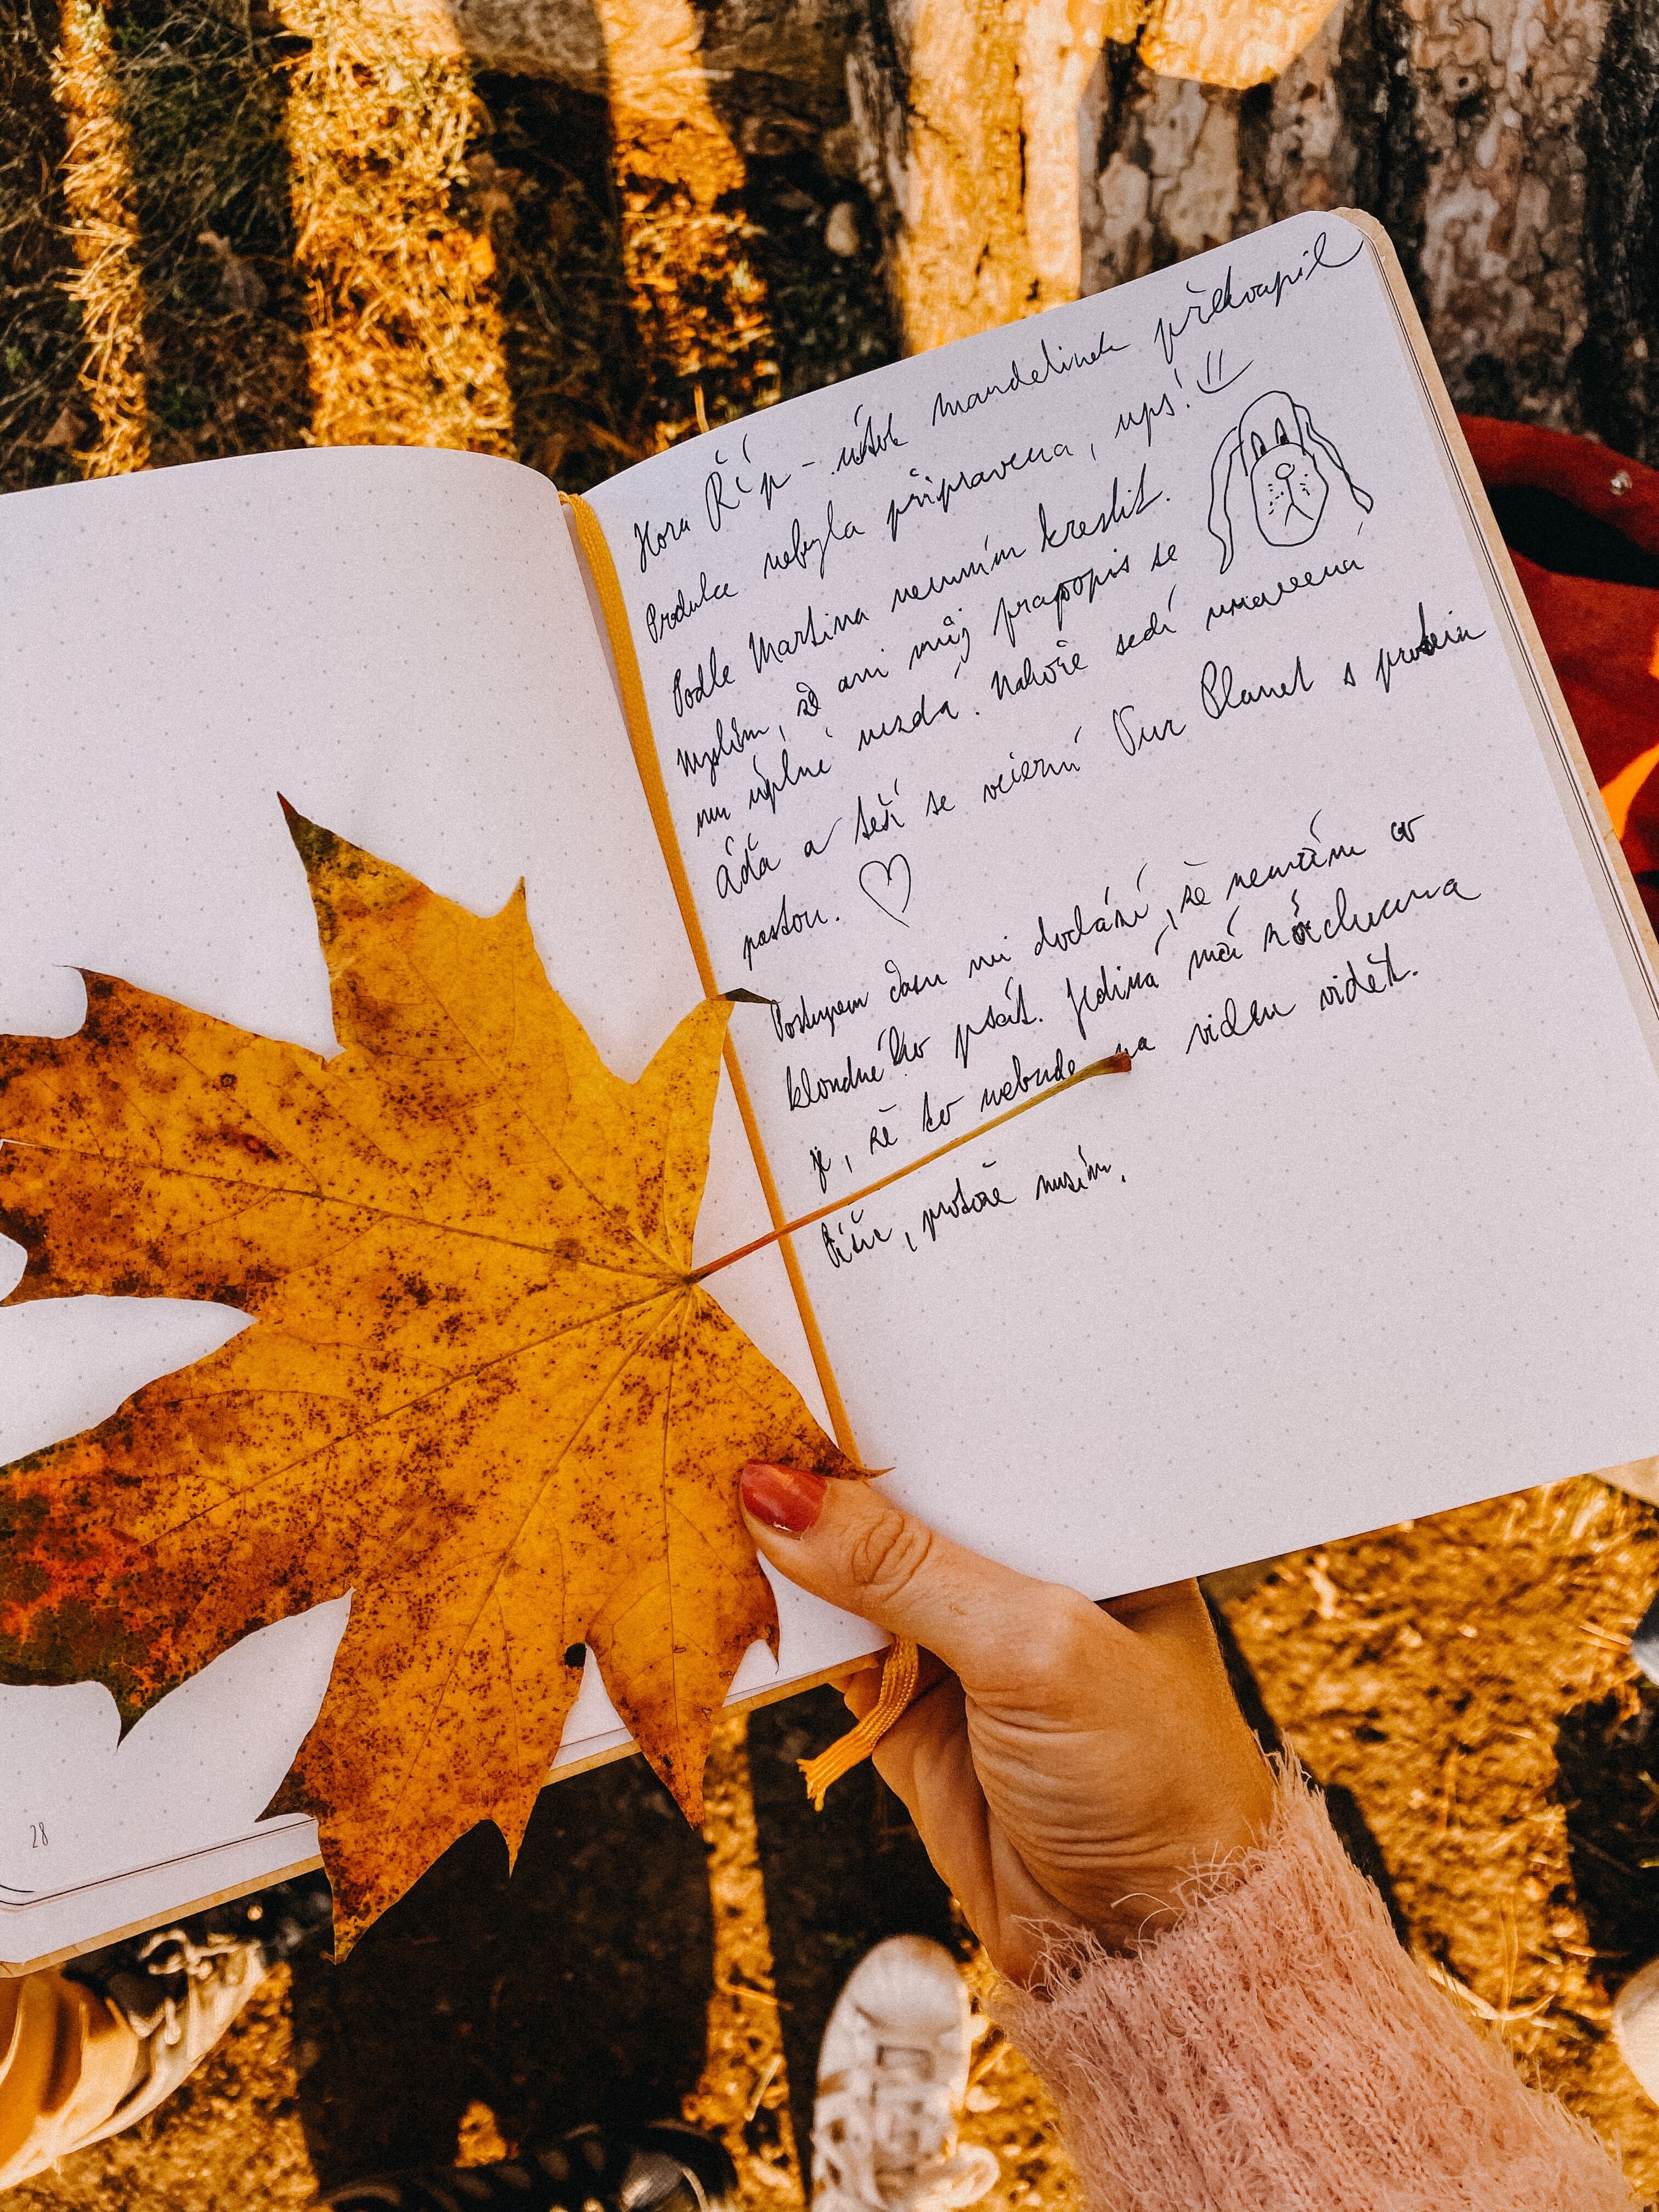 Hora Říp - útok mandelinek překvapil
Produkce nebyla připravena, ups!
Podle Martina neumím kreslit.
Myslím, že ani můj prapopis se
mu úplně nezdá. Nahoře sedí unavená
Áďa a těší se večerní Our Planet s protein
pastou.
Postupem času mi dodání, že nemám co
kloudného psát. Jediná má záchrana
je, že to nebude na videu vidět.
Píšu, protože musím.
28